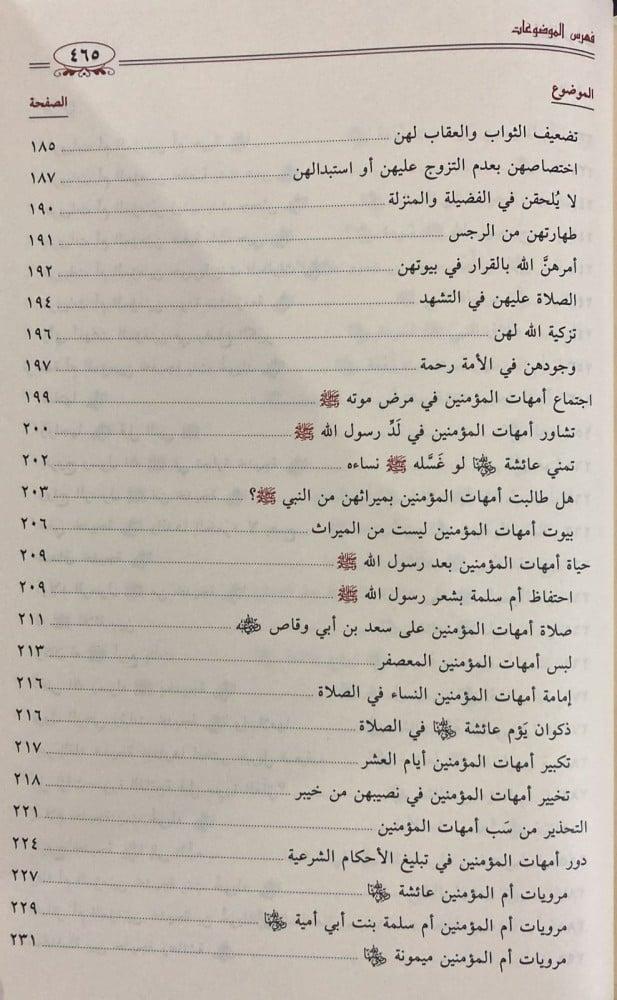 فهرس الموضوعات
٤٦٥
الموضوع الصفحة
تضعيف الثواب والعقاب لهن ١٨٥
اختصاصهن بعدم التزوج عليهن أو استبدالهن ١٨٧
لا يُلحقن في الفضيلة والمنزلة ١٩٠
طهارتهن من الرجس ١٩١
أمرهنَّ الله بالقرار في بيوتهن ١٩٢
الصلاة عليهن في التشهد ١٩٤
تزكية الله لهن ١٩٦
وجودهن في الأمة رحمة ١٩٧
اجتماع أمهات المؤمنين في مرض موته ﷺ ١٩٩
تشاور أمهات المؤمنين في لَدِّ رسول الله ﷺ ٢٠٠
تمني عائشة رضي الله عنها لو غَسَّله ﷺ نساءه ٢٠٢
هل طالبت أمهات المؤمنين بميراثهن من النبي ﷺ؟ ٢٠٣
بيوت أمهات المؤمنين ليست من الميراث ٢٠٦
حياة أمهات المؤمنين بعد رسول الله ﷺ ٢٠٩
احتفاظ أم سلمة بشعر رسول الله ﷺ ٢٠٩
صلاة أمهات المؤمنين على سعد بن أبي وقاص رضي الله عنه ٢١١
لبس أمهات المؤمنين المعصفر ٢١٣
إمامة أمهات المؤمنين النساء في الصلاة ٢١٦
ذكوان يَؤم عائشة رضي الله عنها في الصلاة ٢١٦
تكبير أمهات المؤمنين أيام العشر ٢١٧
تخيير أمهات المؤمنين في نصيبهن من خيبر ٢١٨
التحذير من سَب أمهات المؤمنين ٢٢١
دور أمهات المؤمنين في تبليغ الأحكام الشرعية ٢٢٤
مرويات أم المؤمنين عائشة رضي الله عنها ٢٢٧
مرويات أم المؤمنين أم سلمة بنت أبي أمية رضي الله عنها ٢٢٩
مرويات أم المؤمنين ميمونة رضي الله عنها ٢٣١